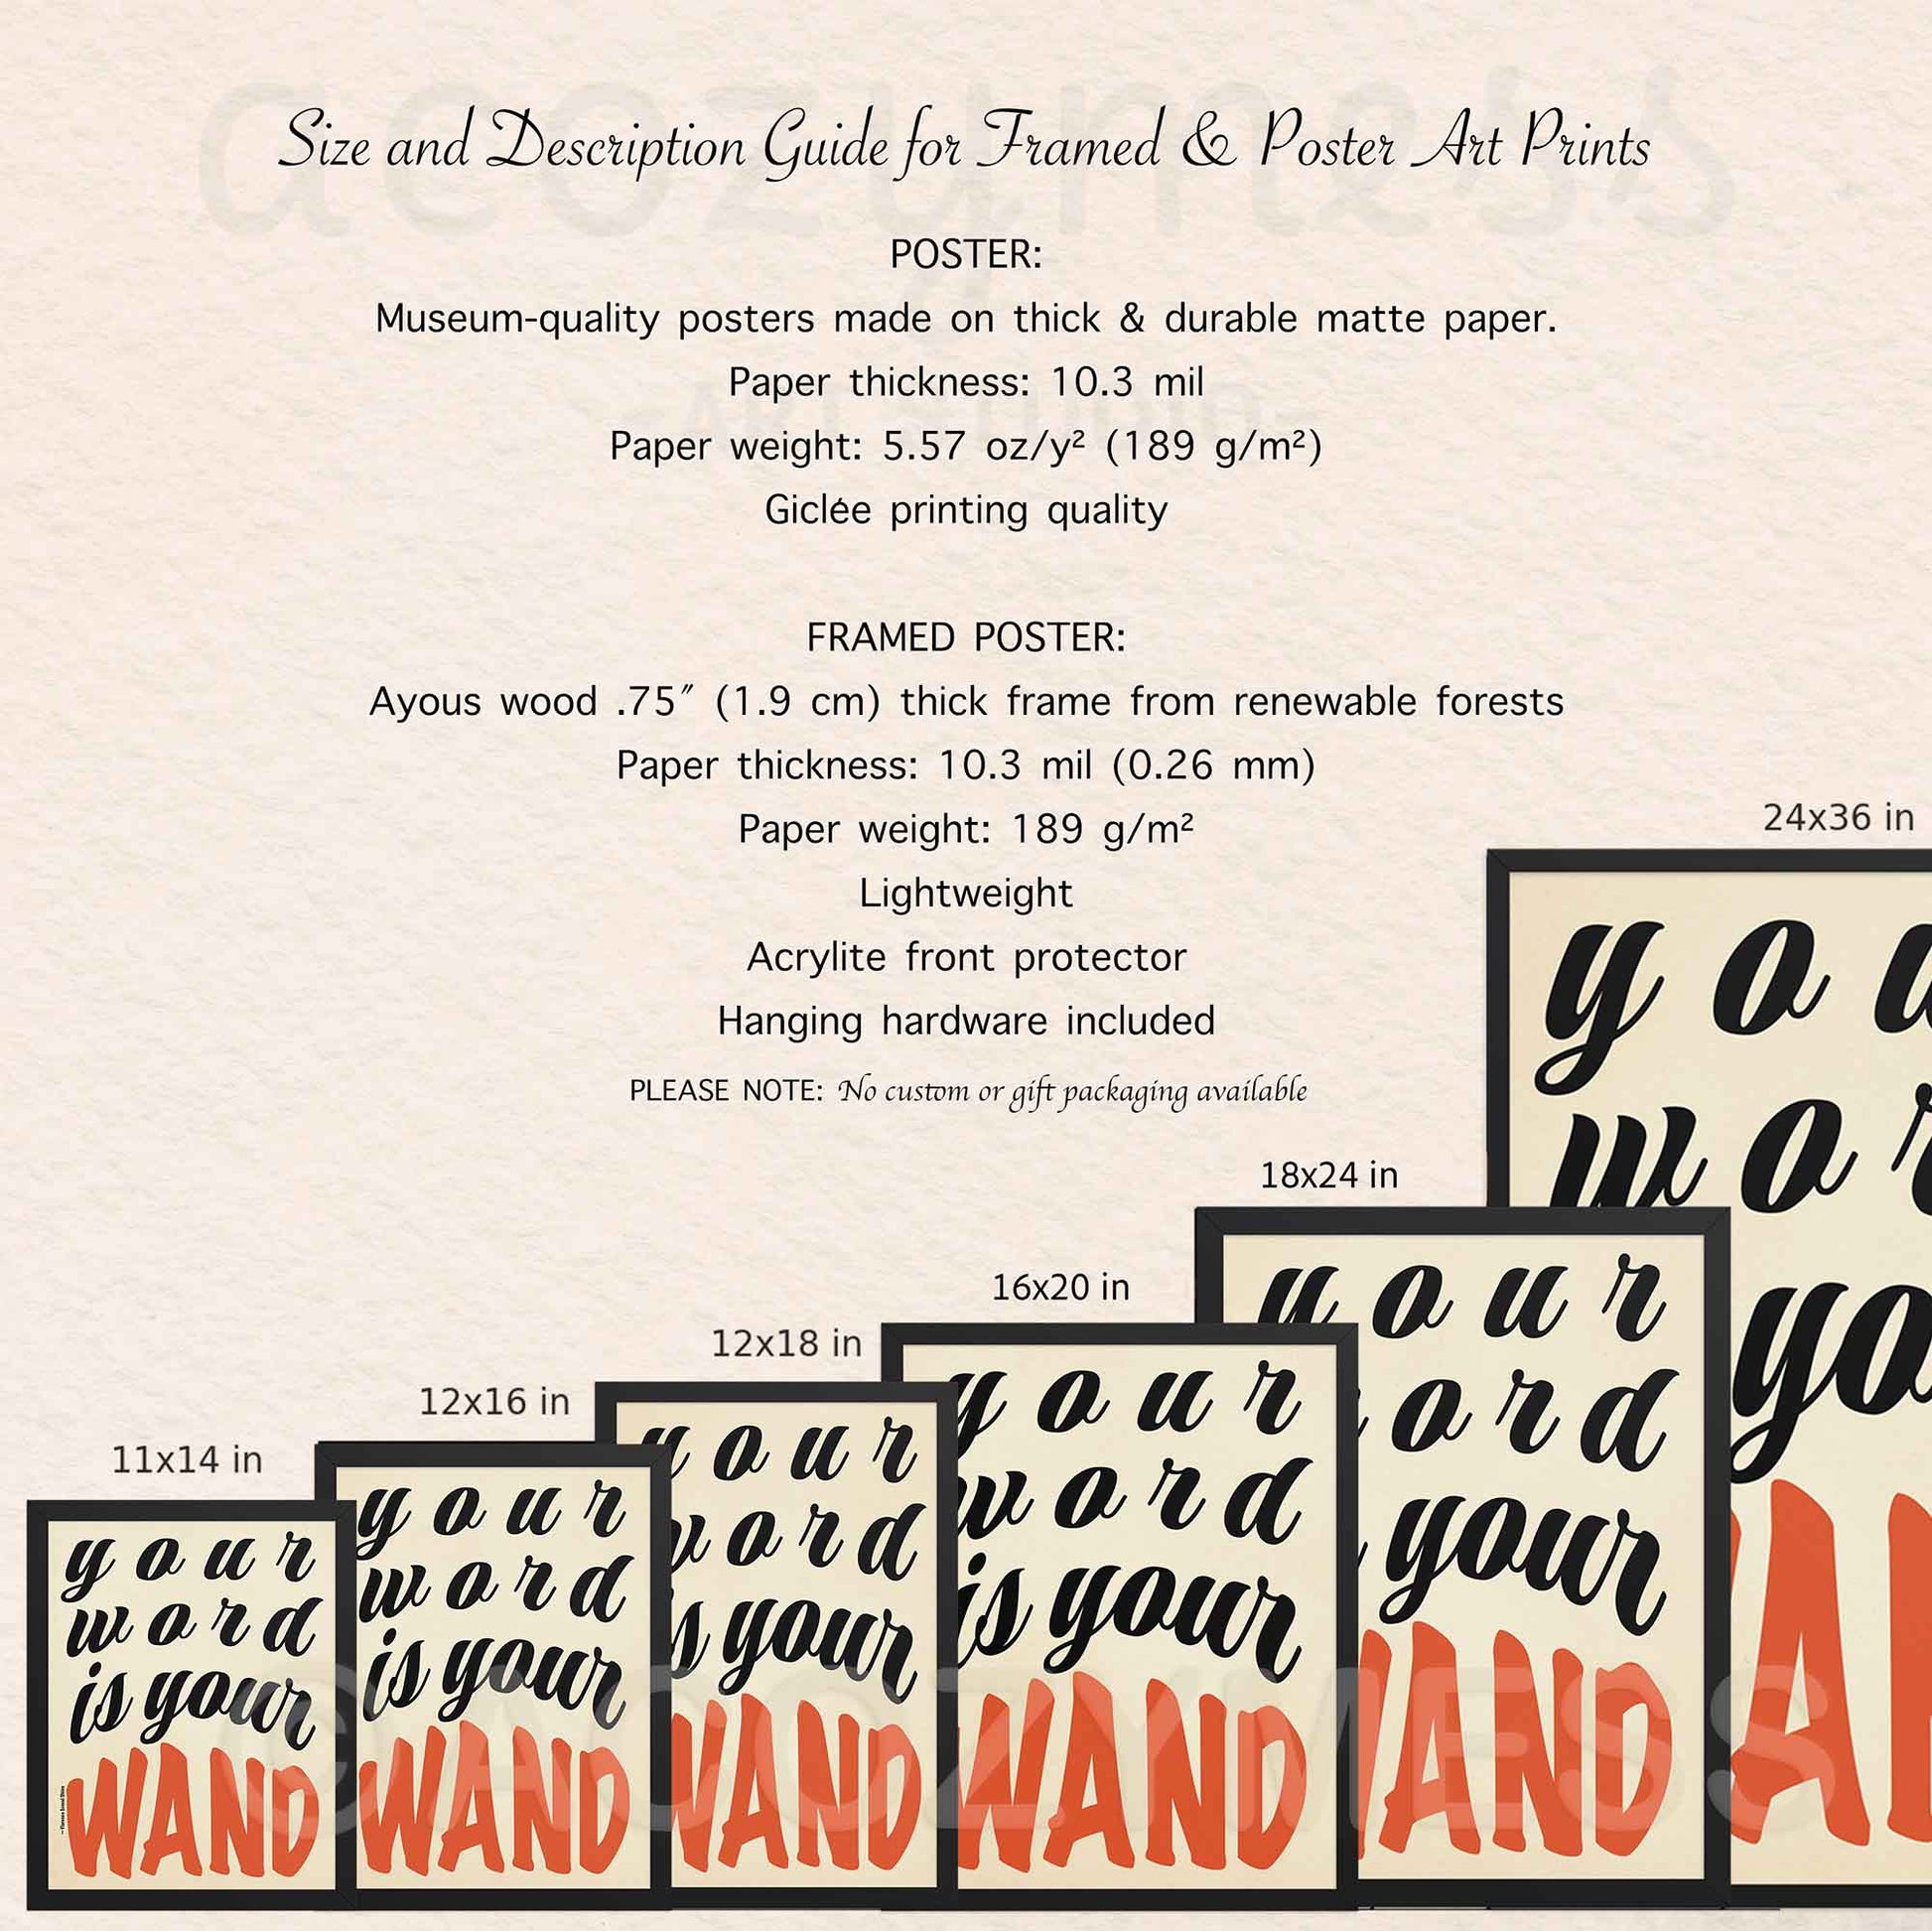 acozymess
Size and Description Guide for Framed & Poster Art Prints
POSTER:
Museum-quality posters made on thick & durable matte paper.
Paper thickness: 10.3 mil
ART STUDIO
Paper weight: 5.57 oz/y² (189 g/m²)
Giclée printing quality
FRAMED POSTER:
Ayous wood .75″ (1.9 cm) thick frame from renewable forests
Paper thickness: 10.3 mil (0.26 mm)
Paper weight: 189 g/m²
Lightweight
Acrylite front protector
Hanging hardware included
PLEASE NOTE: No custom or gift packaging available
11x14 in
your
word
is your
WAND
12x16 in
your
word
is your
WAND
12x18 in
your
word
is your
WAND
16x20 in
your
word
is your
WAND
18x24 in
your
ord
your
WAND
24x36 in
you
wor
yo
AN
©ACOZYMESS